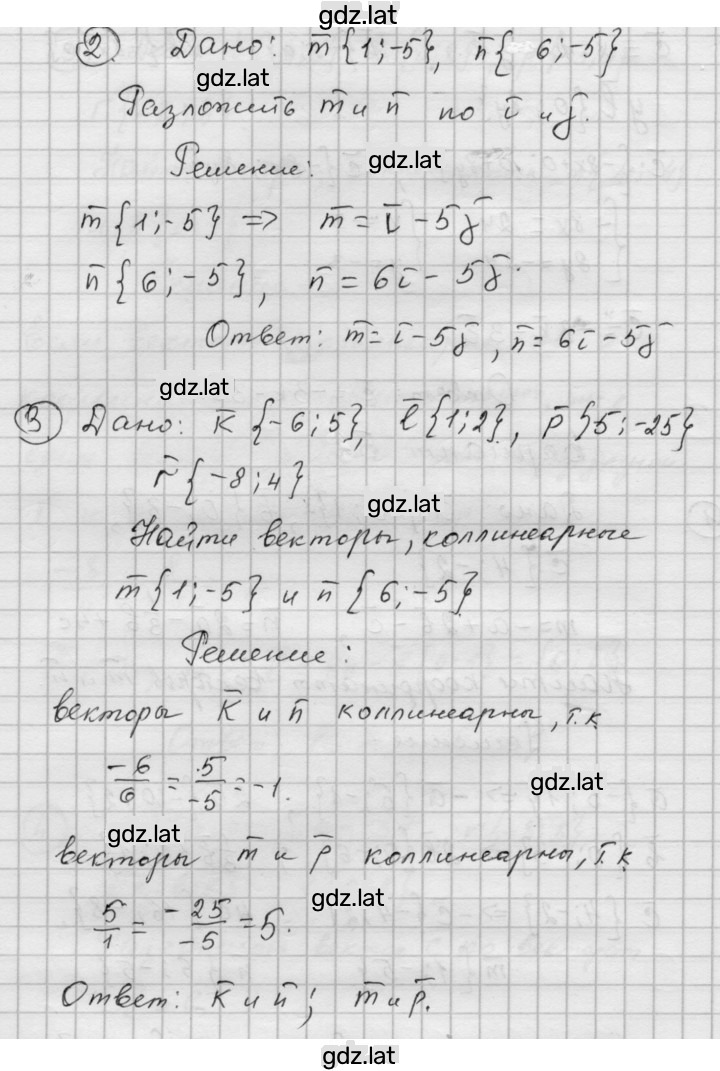 gdz.lat
2. Дано: m̄{1;-5}, n̄{ 6;-5}
gdz.lat
Разложить m̄ и n̄ по ī и j̄.
Решение: gdz.lat
m̄{1;-5} => m̄ = ī - 5j̄
n̄{6;-5}, n̄ = 6ī - 5j̄.
Ответ: m̄= ī-5j̄, n̄= 6ī-5j̄
gdz.lat
3 Дано: k̄{-6;5}, l̄{1;2}, p̄{5;-25}
r̄{-8;4}
gdz.lat
Найти векторы, коллинеарные
m̄{1;-5} и n̄{6;-5}
Решение:
векторы k̄ и n̄ коллинеарны, т.к
-6/6 = 5/-5 = -1.
gdz.lat
gdz.lat
векторы m̄ и p̄ коллинеарны, т.к
gdz.lat
5/1 = -25/-5 = 5.
Ответ: k̄ и n̄; m̄ и p̄.
gdz.lat